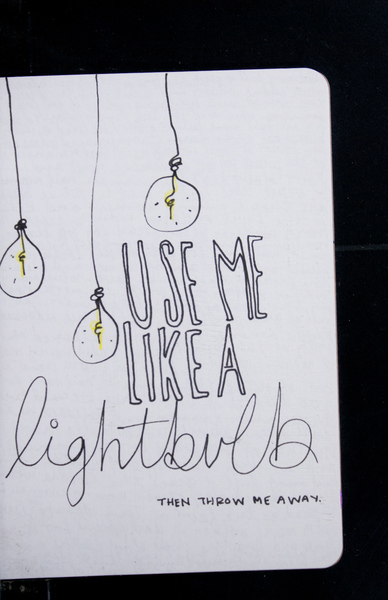 USE ME
LIKE A
lightbulb
THEN THROW ME AWAY.